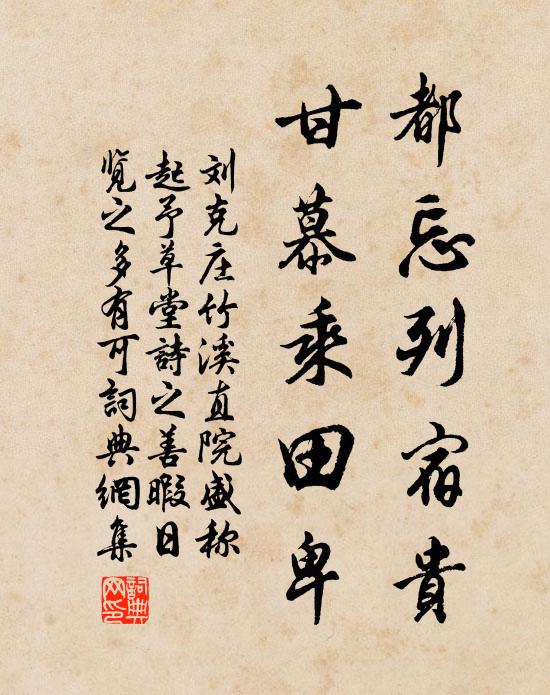 都忘列宿貴
甘慕乘田卑
刘克庄竹溪直院盛称
起予草堂詩之善暇日
览之多有可詞典網集
詞典網印